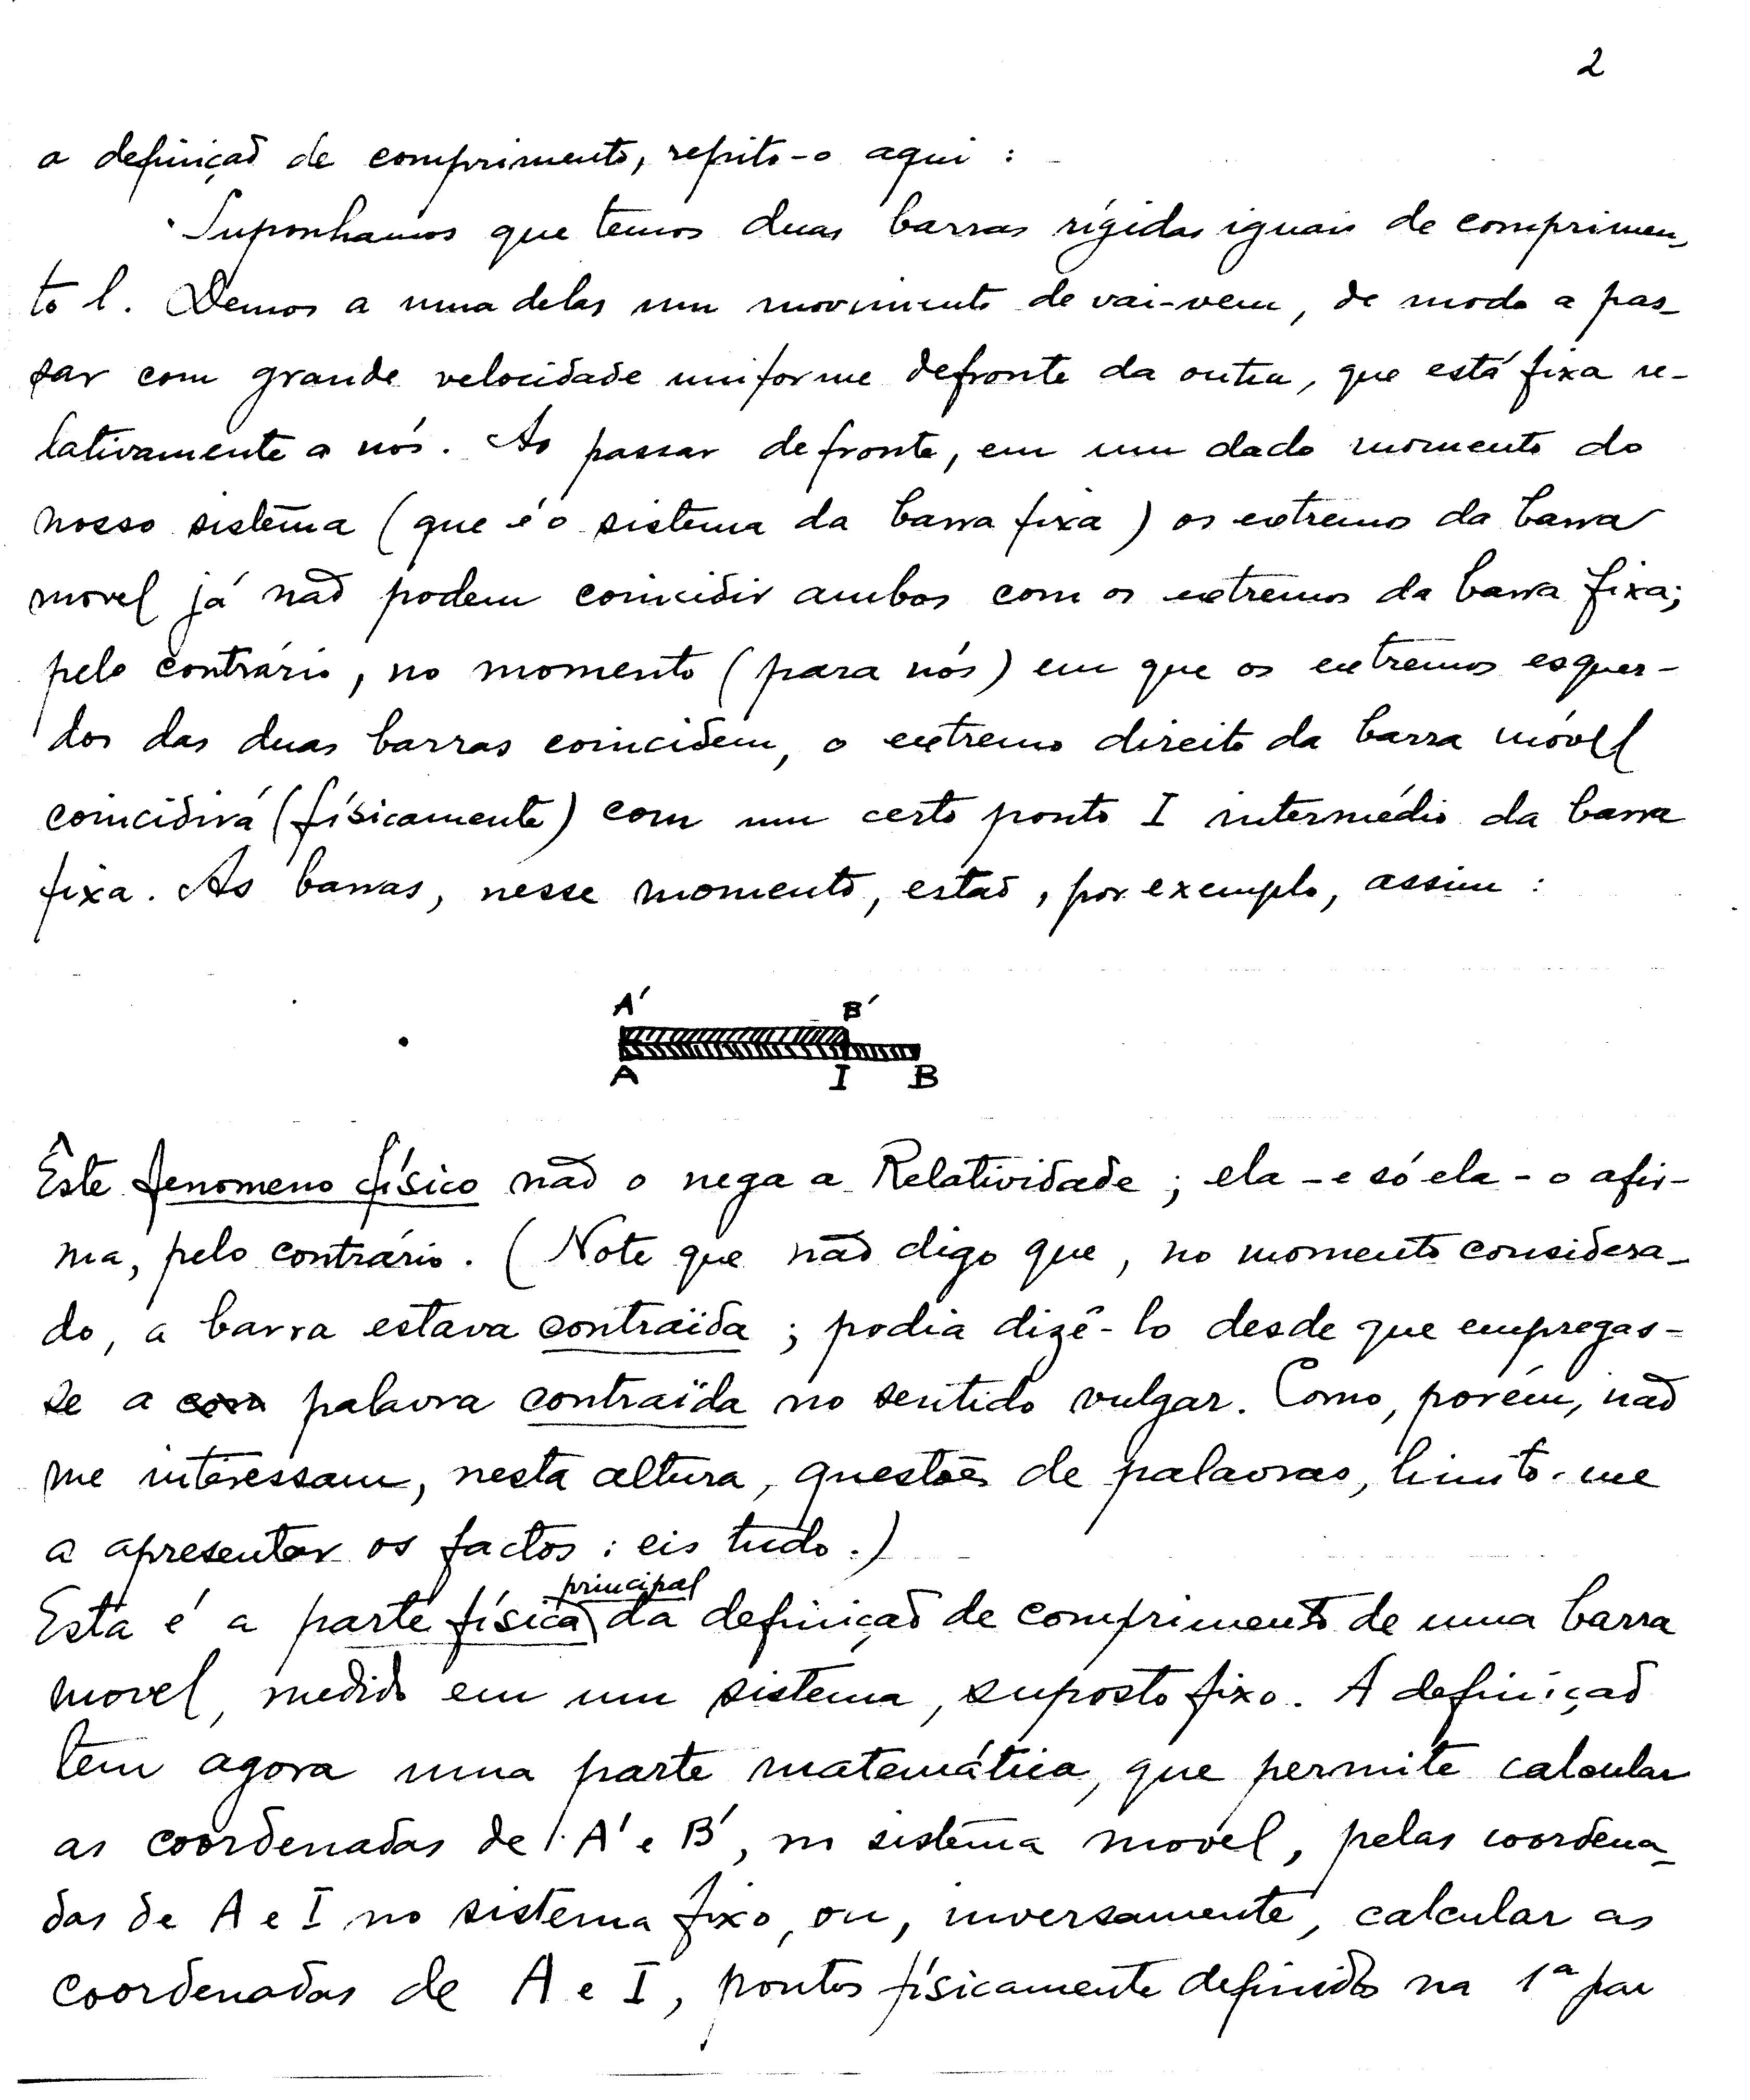 2
a definição de comprimento, repito-o aqui :
Suponhamos que temos duas barras rígidas iguais de comprimen-
to l. Demos a uma delas um movimento de vai-vem, de modo a pas-
sar com grande velocidade uniforme defronte da outra, que está fixa re-
lativamente a nós. Ao passar defronte, em um dado momento do
nosso sistema (que é o sistema da barra fixa) os extremos da barra
movel já não podem coincidir ambos com os extremos da barra fixa;
pelo contrário, no momento (para nós) em que os extremos esquer-
dos das duas barras coincidem, o extremo direito da barra móvel
coincidirá (físicamente) com um certo ponto I intermédio da barra
fixa. As barras, nesse momento, estão, por exemplo, assim :
A' B'
A I B
Êste fenomeno físico não o nega a Relatividade ; ela - e só ela - o afir-
ma, pelo contrário. (Note que não digo que, no momento considera-
do, a barra estava contraïda ; podia dizê-lo desde que empregas-
se a palavra contraïda no sentido vulgar. Como, porém, não
me interessam, nesta altura, questões de palavras, limito-me
a apresentar os factos : eis tudo.)
principal
Esta é a parte física da definição de comprimento de uma barra
movel, medido em um sistema, suposto fixo. A definição
tem agora uma parte matemática, que permite calcular
as coordenadas de A' e B', no sistema movel, pelas coordena-
das de A e I no sistema fixo, ou, inversamente, calcular as
coordenadas de A e I, pontos físicamente definidos na 1ª par